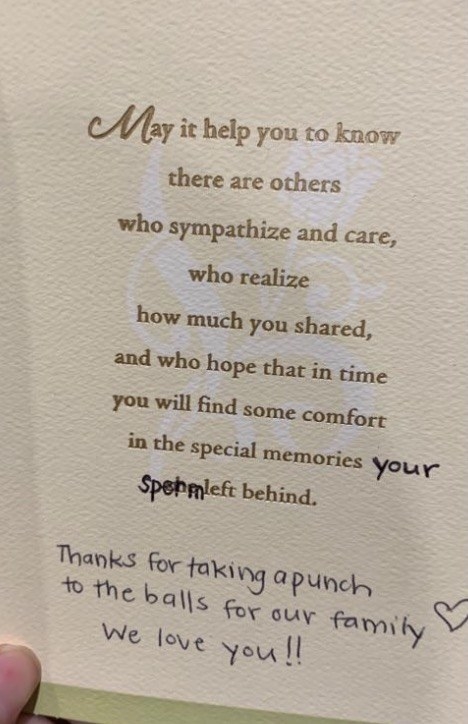 May it help you to know
there are others
who sympathize and care,
who realize
how much you shared,
and who hope that in time
you will find some comfort
in the special memories your
sperm left behind.
Thanks for taking a punch
to the balls for our family
We love you!!